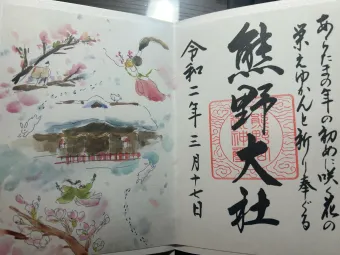 あらたまの年の初めに咲く花の
栄えゆかんと祈り奉てる
熊野大社
令和二年三月十七日